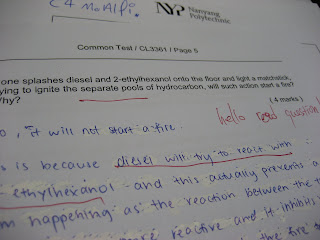 C4 MoAlPi.
NYP Nanyang Polytechnic
Common Test / CL3361 / Page 5
one splashes diesel and 2-ethylhexanol onto the floor and light a matchstick,
ying to ignite the separate pools of hydrocarbon, will such action start a fire?
Why?
(4 marks)
hello read question!
o, it will not start a fire.
is is because diesel will try to react with
ethylhexanol and this actually prevents a
m happening as the reaction between the t
reactive and it inhibits
the fire to